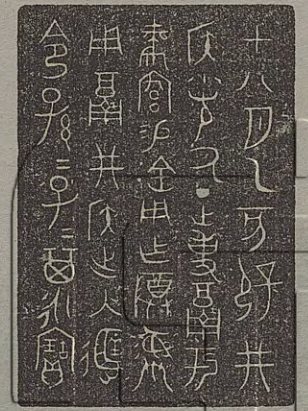 才八月乙亥辟井
侯光氒正吏鬲于
麥宮易金用乍𬯚彝
用鬲井侯出入
令孫＝子＝其永寶